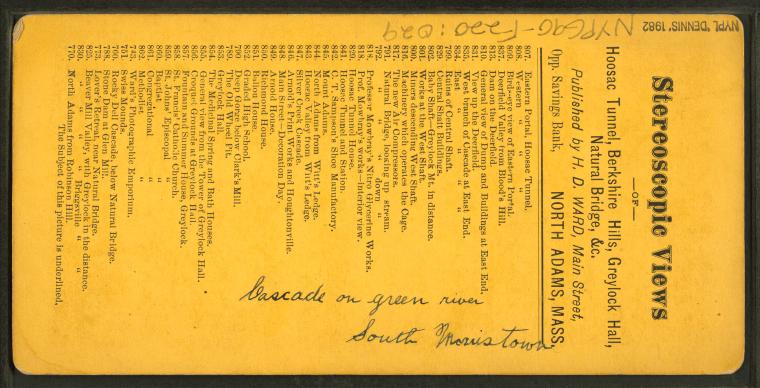 NYPL 'DENNIS' 1982
NYPG96-F220:029
Stereoscopic Views
—OF—
Hoosac Tunnel, Berkshire Hills, Greylock Hall,
Natural Bridge, &c.
Published by H. D. WARD, Main Street,
Opp. Savings Bank, NORTH ADAMS, MASS.
807. Eastern Portal, Hoosac Tunnel.
808. Western " " "
809. Bird's-eye view of Eastern Portal.
812. Deerfield Valley from Blood's Hill.
813. Dam on the Deerfield.
810. General view of Dump and Buildings at East End.
837. View up the Deerfield.
835. West branch of Cascade at East End.
834. East " " " "
799. Ruins of Central Shaft.
829. Central Shaft Buildings.
802. Baby Shaft—Greylock Mt. in distance.
801. Works at the West Shaft.
800. Miners descending West Shaft.
816. Machinery which operates the Cage.
817. The new Air Compressors.
791. Natural Bridge, looking up stream.
792. " " " down "
818. Professor Mowbray's Nitro Glycerine Works.
818. Prof. Mowbray's works—interior view.
829. Hoosac Tunnel House.
841. Hoosac Tunnel and Station.
842. C. T. Sampson's Shoe Manufactory.
845. North Adams.
844. North Adams from Witt's Ledge.
843. Hoosac Valley from Witt's Ledge.
847. Silver City Cascade.
846. Arnold's Print Works and Houghtonville.
848. Main Street—Decoration Day.
849. Arnold House.
850. Richmond House.
851. Ballou House.
852. Graded High School.
790. Deep Gorge below Clark's Mill.
789. The Old Wheel Pit.
853. Greylock Hall.
854. The Medical Spring and Bath Houses.
855. General view from the Tower of Greylock Hall.
856. Croquet Grounds at Greylock Hall.
857. Fountain and Summer House, Greylock.
858. St. Francis' Catholic Church.
859. St. Johns' Episcopal "
860. Baptist "
861. Congregational "
862. Methodist "
743. Ward's Photographic Emporium.
701. Swiss Mounds.
796. Rocky Dell Cascade, below Natural Bridge.
788. Stone Dam at Glen Mill.
773. Lover's Retreat near Natural Bridge.
825. Beaver Mill Valley, with Greylock in the distance.
830. " " " " Briggsville "
770. North Adams from Robinson Hill.
The Subject of this picture is underlined.
Cascade on green river
South Morristown